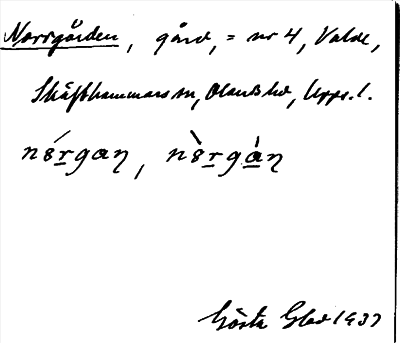 Norrgården, gård, = nr 4, Valde,
Skäfthammars sn, Olands hd, Upps. l.
Gösta Glad 1937